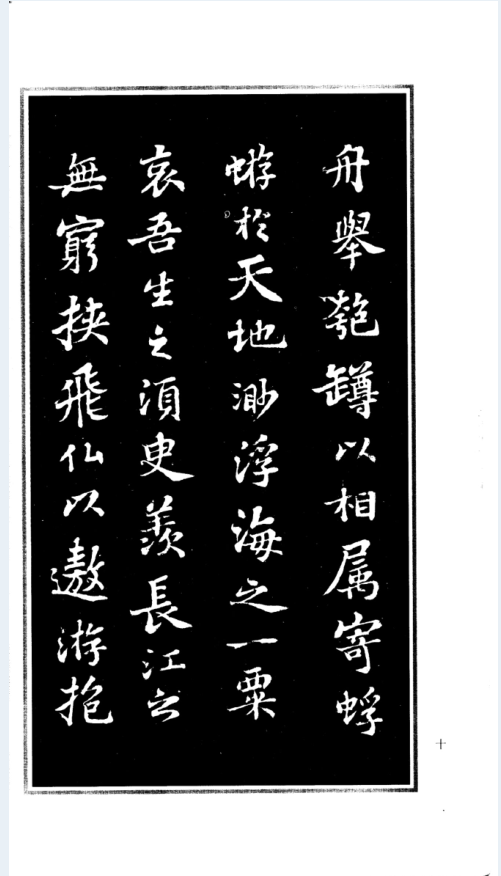 舟舉匏罇以相属寄蜉
蝣於天地渺浮海之一粟
哀吾生之須臾羨長江之
無窮挾飛仙以遨游抱
十